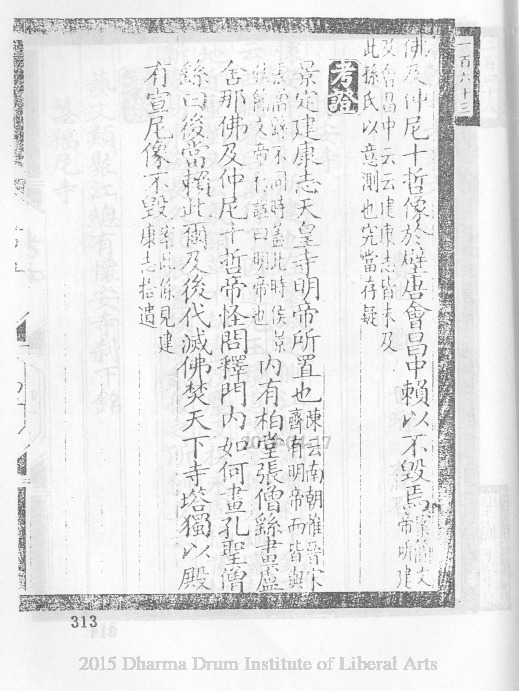 一百六十三
佛及仲尼十哲像於壁唐會昌中賴以不毀焉
及會昌中云云建康志皆未及
此孫氏以意測也究當存疑
考證
景定建康志天皇寺明帝所置也陳云南朝惟晉宋
齊有明帝而皆與
張僧繇不同時蓋此時侯景
帝也內有柏堂張僧繇畫盧
舍那佛及仲尼十哲帝怪問釋門內如何畫孔聖僧
繇曰後當賴此爾及後代滅佛焚天下寺塔獨以殿
有宣尼像不毀案此條見建
康志拾遺
313
2015 Dharma Drum Institute of Liberal Arts